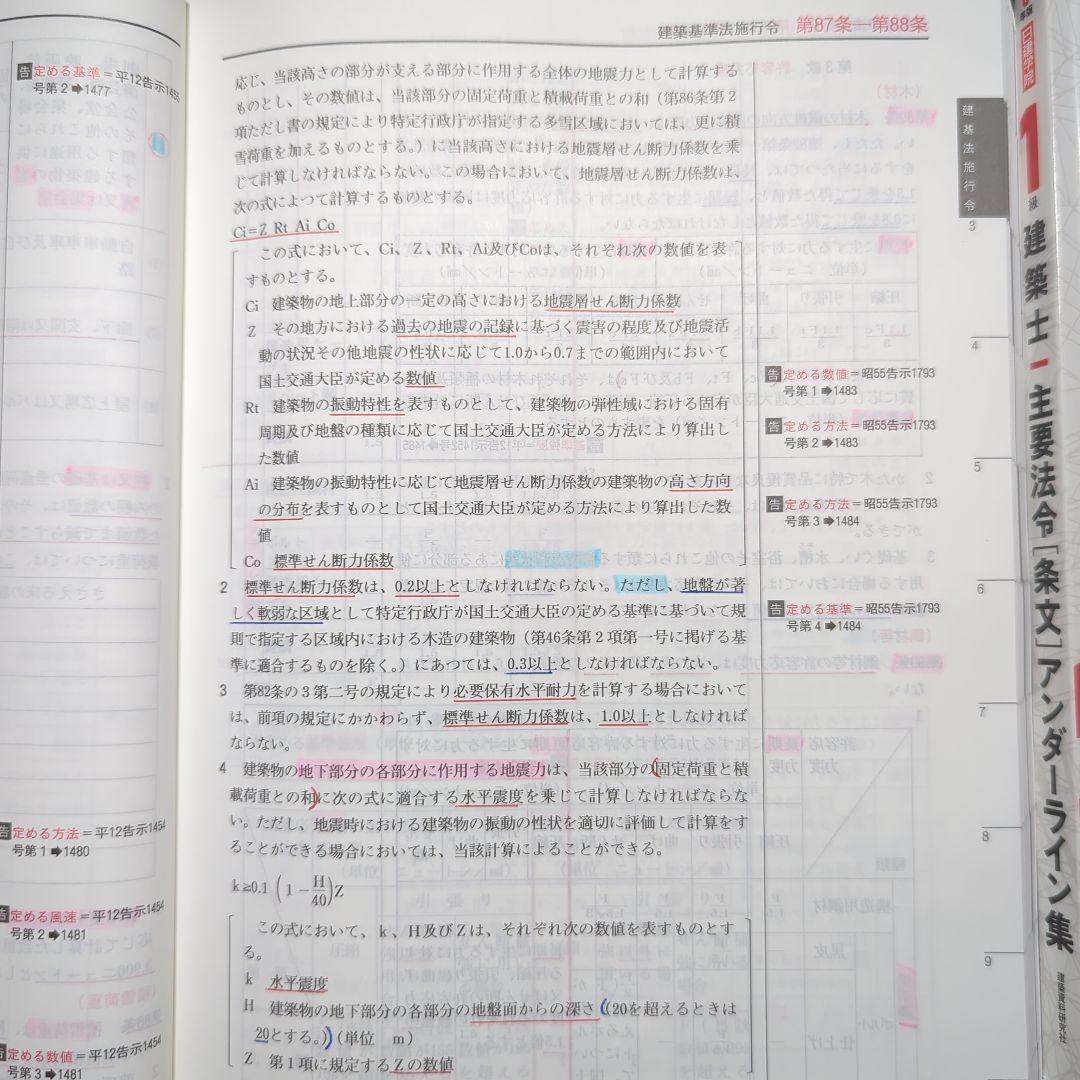 建築基準法施行令　第87条―第88条
応じ、当該高さの部分が支える部分に作用する全体の地震力として計算する
ものとし、その数値は、当該部分の固定荷重と積載荷重との和（第86条第2
項ただし書の規定により特定行政庁が指定する多雪区域においては、更に積
雪荷重を加えるものとする。）に当該高さにおける地震層せん断力係数を乗
じて計算しなければならない。この場合において、地震層せん断力係数は、
次の式によつて計算するものとする。
Ci=Z Rt Ai Co
この式において、Ci、Z、Rt、Ai及びCoは、それぞれ次の数値を表
すものとする。
Ci　建築物の地上部分の一定の高さにおける地震層せん断力係数
Z　その地方における過去の地震の記録に基づく震害の程度及び地震活
動の状況その他地震の性状に応じて1.0から0.7までの範囲内において
国土交通大臣が定める数値
Rt　建築物の振動特性を表すものとして、建築物の弾性域における固有
周期及び地盤の種類に応じて国土交通大臣が定める方法により算出し
た数値
Ai　建築物の振動特性に応じて地震層せん断力係数の建築物の高さ方向
の分布を表すものとして国土交通大臣が定める方法により算出した数
値
Co　標準せん断力係数
2　標準せん断力係数は、0.2以上としなければならない。ただし、地盤が著
しく軟弱な区域として特定行政庁が国土交通大臣の定める基準に基づいて規
則で指定する区域内における木造の建築物（第46条第2項第一号に掲げる基
準に適合するものを除く。）にあつては、0.3以上としなければならない。
3　第82条の3第二号の規定により必要保有水平耐力を計算する場合において
は、前項の規定にかかわらず、標準せん断力係数は、1.0以上としなければ
ならない。
4　建築物の地下部分の各部分に作用する地震力は、当該部分の固定荷重と積
載荷重との和に次の式に適合する水平震度を乗じて計算しなければならな
い。ただし、地震時における建築物の振動の性状を適切に評価して計算をす
ることができる場合においては、当該計算によることができる。
k≧0.1（1－H/40）Z
この式において、k、H及びZは、それぞれ次の数値を表すものとす
る。
k　水平震度
H　建築物の地下部分の各部分の地盤面からの深さ（20を超えるときは
20とする。）（単位　m）
Z　第1項に規定するZの数値
告定める数値＝昭55告示1793
号第1➡1483
告定める方法＝昭55告示1793
号第2➡1483
告定める方法＝昭55告示1793
号第3➡1484
告定める基準＝昭55告示1793
号第4➡1484
告定める基準＝平12告示1455
号第2➡1477
告定める方法＝平12告示1454
号第1➡1480
告定める風速＝平12告示1454
号第2➡1481
告定める数値＝平12告示1454
号第3➡1481
建基法施行令
3
4
5
6
7
8
9
日建学院
1級建築士 主要法令［条文］アンダーライン集
建築資料研究社